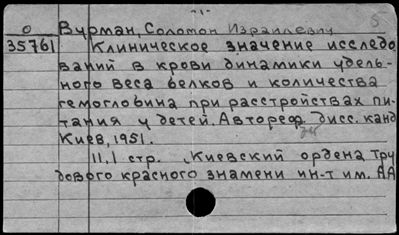 -1-
О Вурман, Соломон Израилевич
35761 Клиническое значение исследо
ваний в крови динамики удель-
ного веса белков и количества
гемоглобина при расстройствах пи-
тания у детей. Автореф. дисс. канд
Киев, 1951.
11,1 стр. , Киевский ордена Тру
дового красного знамени ин-т им. АА